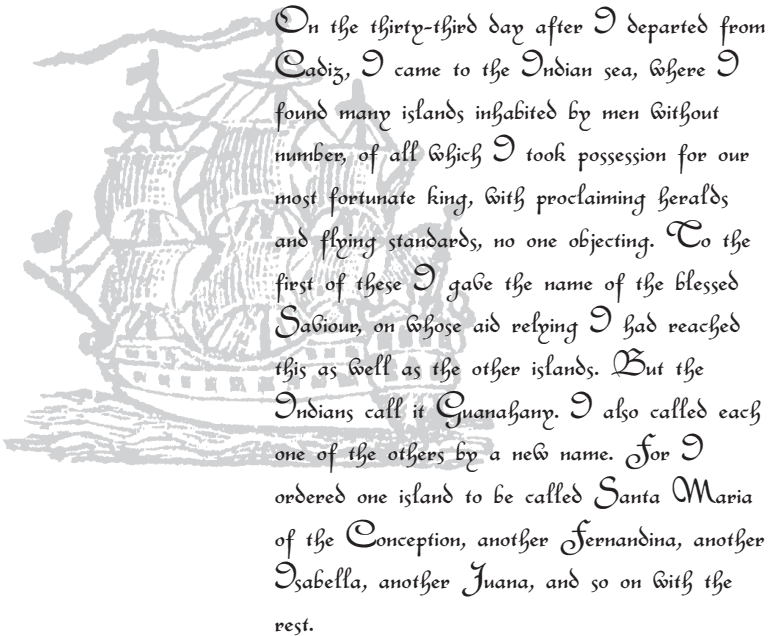 On the thirty-third day after I departed from
Cadiz, I came to the Indian sea, where I
found many islands inhabited by men without
number, of all which I took possession for our
most fortunate king, with proclaiming heralds
and flying standards, no one objecting. To the
first of these I gave the name of the blessed
Saviour, on whose aid relying I had reached
this as well as the other islands. But the
Indians call it Guanahany. I also called each
one of the others by a new name. For I
ordered one island to be called Santa Maria
of the Conception, another Fernandina, another
Isabella, another Juana, and so on with the
rest.